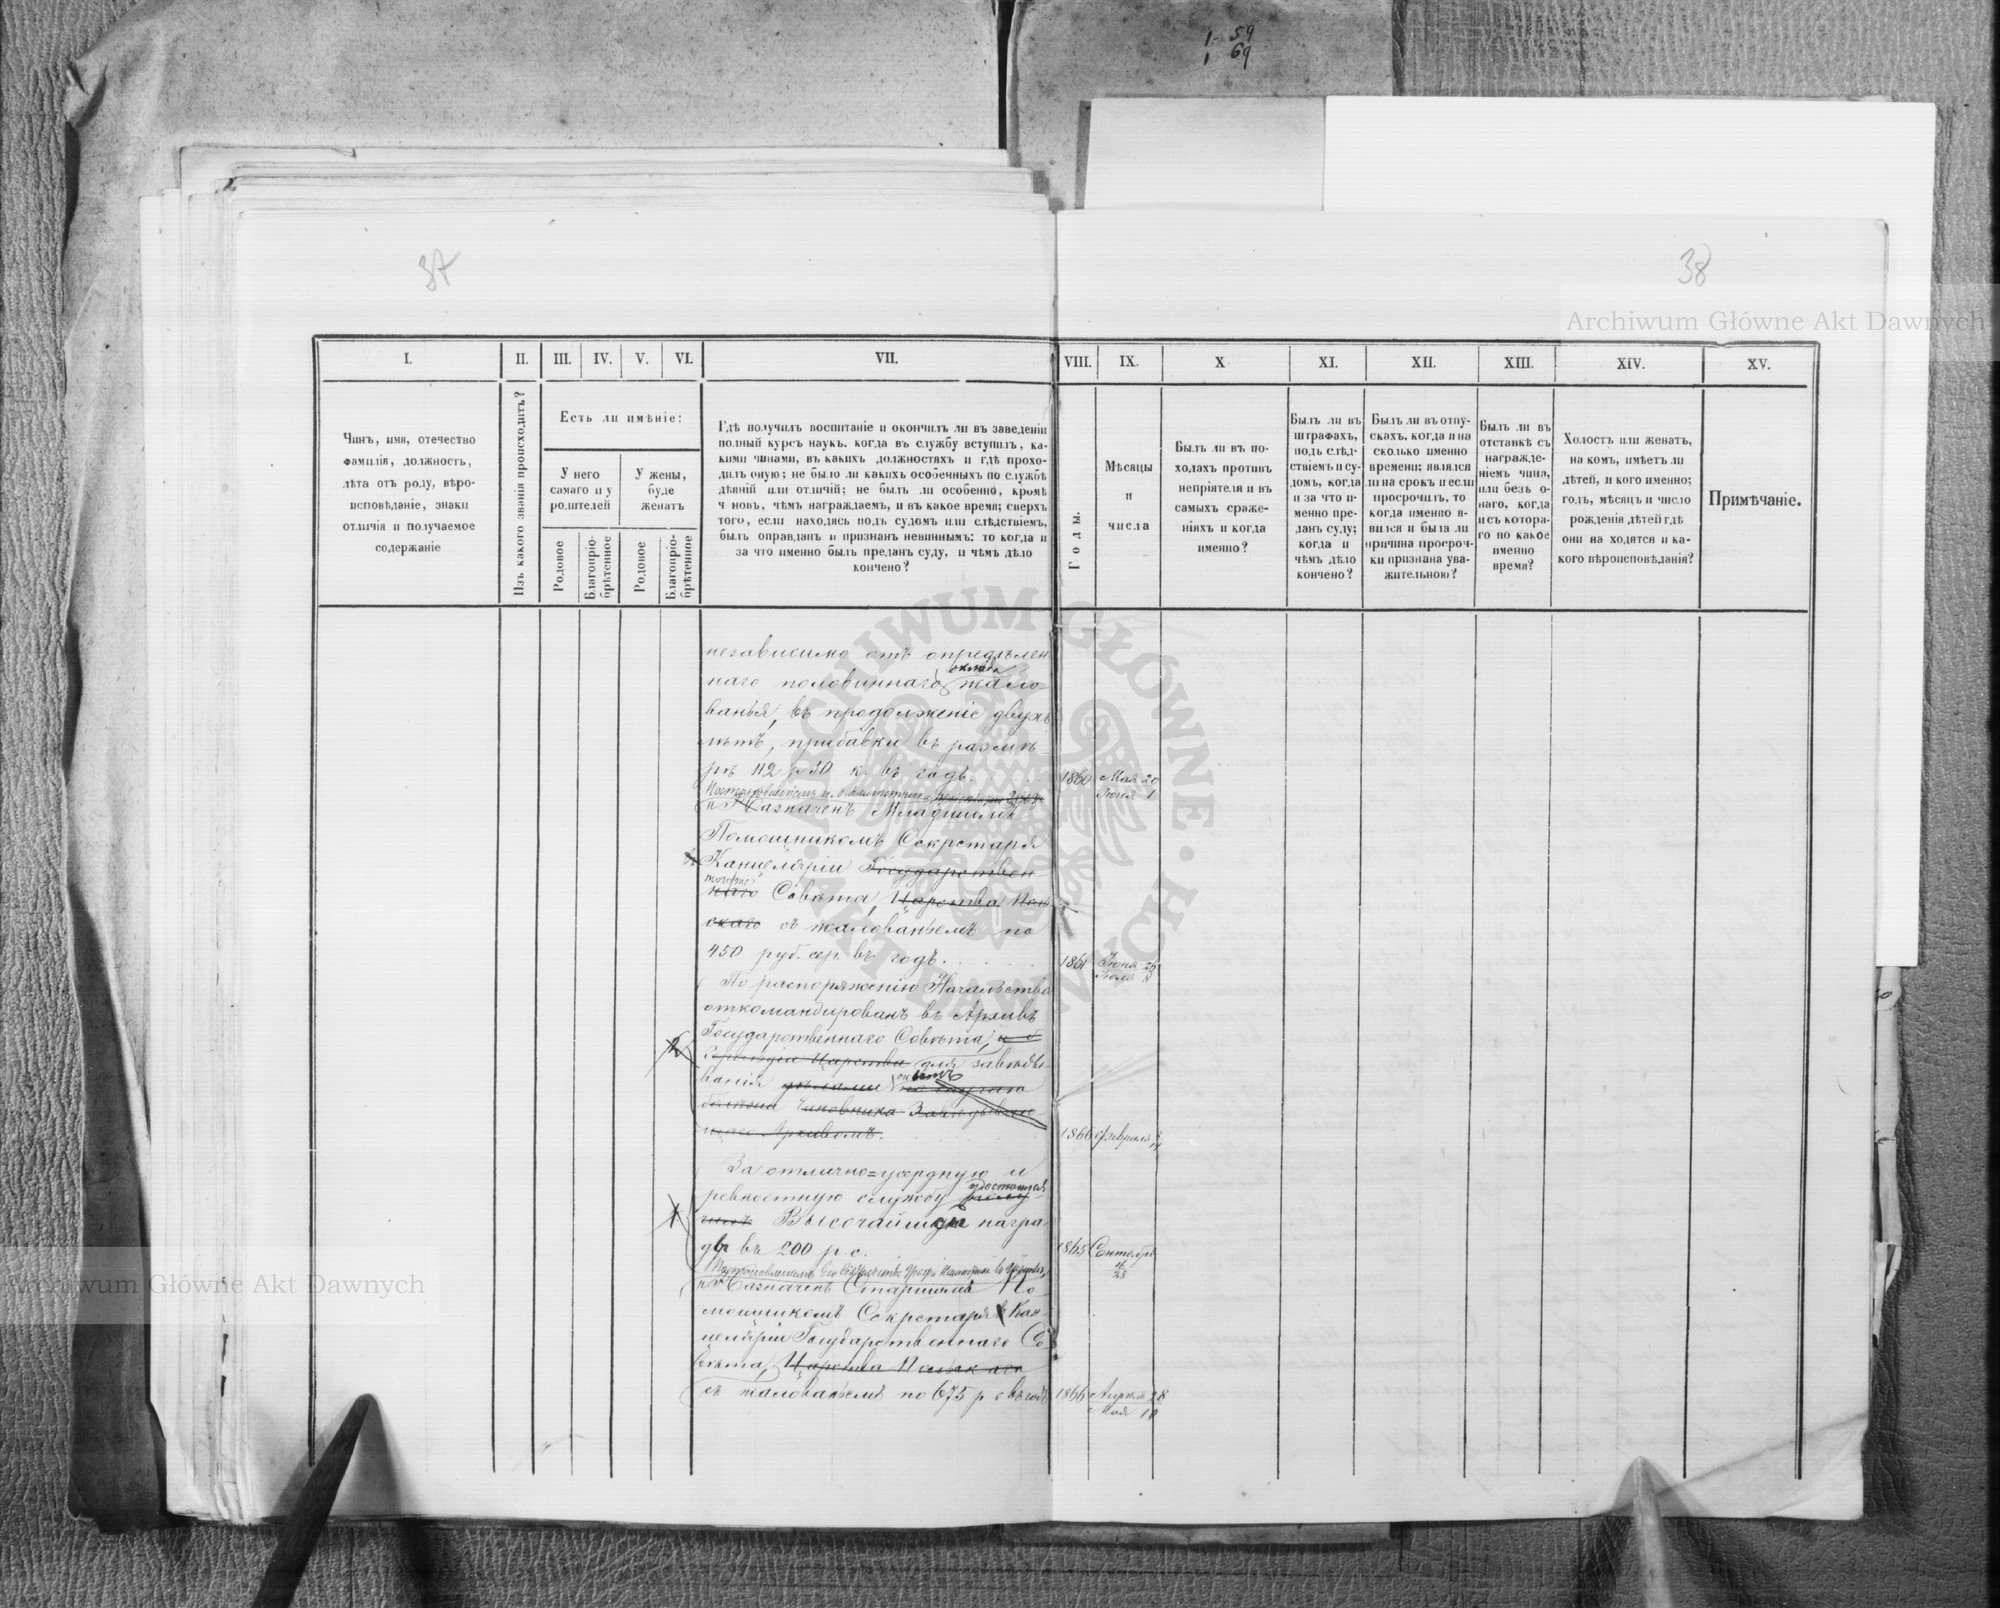 1 59
1 69
37
38
Archiwum Główne Akt Dawnych
I.
II.
III.
IV.
V.
VI.
VII.
VIII.
IX.
X
XI.
XII.
XIII.
XIV.
XV.
Чинъ, имя, отечество
фамилія, должность,
лѣта отъ роду, вѣро-
исповѣданіе, знаки
отличія и получаемое
содержаніе
Изъ какого званія происходитъ?
Есть ли имѣніе:
У него
самаго и у
родителей
У жены,
буде
женатъ
Родовое
Благопріо-
брѣтенное
Родовое
Благопріо-
брѣтенное
Гдѣ получилъ воспитаніе и окончилъ ли въ заведеніи
полный курсъ наукъ, когда въ службу вступилъ, ка-
кими чинами, въ какихъ должностяхъ и гдѣ прохо-
дилъ оную; не было ли какихъ особенныхъ по службѣ
дѣяній или отличій; не былъ ли особенно, кромѣ
ч новъ, чѣмъ награждаемъ, и въ какое время; сверхъ
того, если находясь подъ судомъ или слѣдствіемъ,
былъ оправданъ и признанъ невиннымъ: то когда и
за что именно былъ преданъ суду, и чѣмъ дѣло
кончено?
Годы.
Мѣсяцы
и
числа
Былъ ли въ по-
ходахъ противъ
непріятеля и въ
самыхъ сраже-
ніяхъ и когда
именно?
Былъ ли въ
штрафахъ,
подъ слѣд-
ствіемъ и су-
домъ, когда
и за что и-
менно пре-
данъ суду;
когда и
чѣмъ дѣло
кончено?
Былъ ли въ отпу-
скахъ, когда и на
сколько именно
времени; являлся
ли на срокъ и если
просрочилъ, то
когда именно я-
вился и была ли
причина просроч-
ки признана ува-
жительною?
Былъ ли въ
отставкѣ съ
награжде-
ніемъ чина,
или безъ о-
наго, когда
и съ котора-
го по какое
именно
время?
Холостъ или женатъ,
на комъ, имѣетъ ли
дѣтей, и кого именно;
годъ, мѣсяцъ и число
рожденія дѣтей гдѣ
они на ходятся и ка-
кого вѣроисповѣданія?
Примѣчаніе.
независимо отъ опредѣлен
наго половиннаго оклада жало
ванья, въ продолженіе двухъ
лѣтъ, прибавки въ размѣ-
рѣ 112 р 50 к. въ годъ.
1860 Мая 20
Іюня 1
Назначенъ Младшимъ
Помощникомъ Секретаря
Канцеляріи Государствен
наго Совѣта, Царства Поль
скаго съ жалованьемъ по
450 руб. сер. въ годъ.
1861 Іюня 26
Іюля 8
По распоряженію Начальства
откомандированъ въ Архивъ
Государственнаго Совѣта,
Царства для завѣды-
ванія дѣлами
болѣзни Чиновника Завѣдываю-
щаго Архивомъ.
1866 Февраля
За отлично=усердную и
ревностную службу удостоился
Высочайшей награ-
ды въ 200 р. с.
1865 Сентября
16
28
Назначенъ Старшимъ По-
мощникомъ Секретаря Кан-
целяріи Государственнаго Со-
вѣта, Царства Польскаго
съ жалованьемъ по 675 р с въ годъ
1866 Апрѣля 28
Мая 10
Archiwum Główne Akt Dawnych
ARCHIWUM GŁÓWNE · AKT DAWNYCH ·